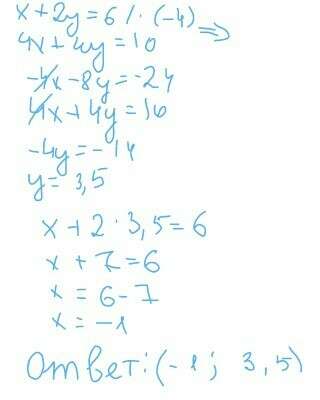 x + 2y = 6 /· (-4) ⇒
4x + 4y = 10
-4x - 8y = -24
4x + 4y = 10
-4y = -14
y = 3,5
x + 2 · 3,5 = 6
x + 7 = 6
x = 6 - 7
x = -1
Ответ: (-1; 3,5)